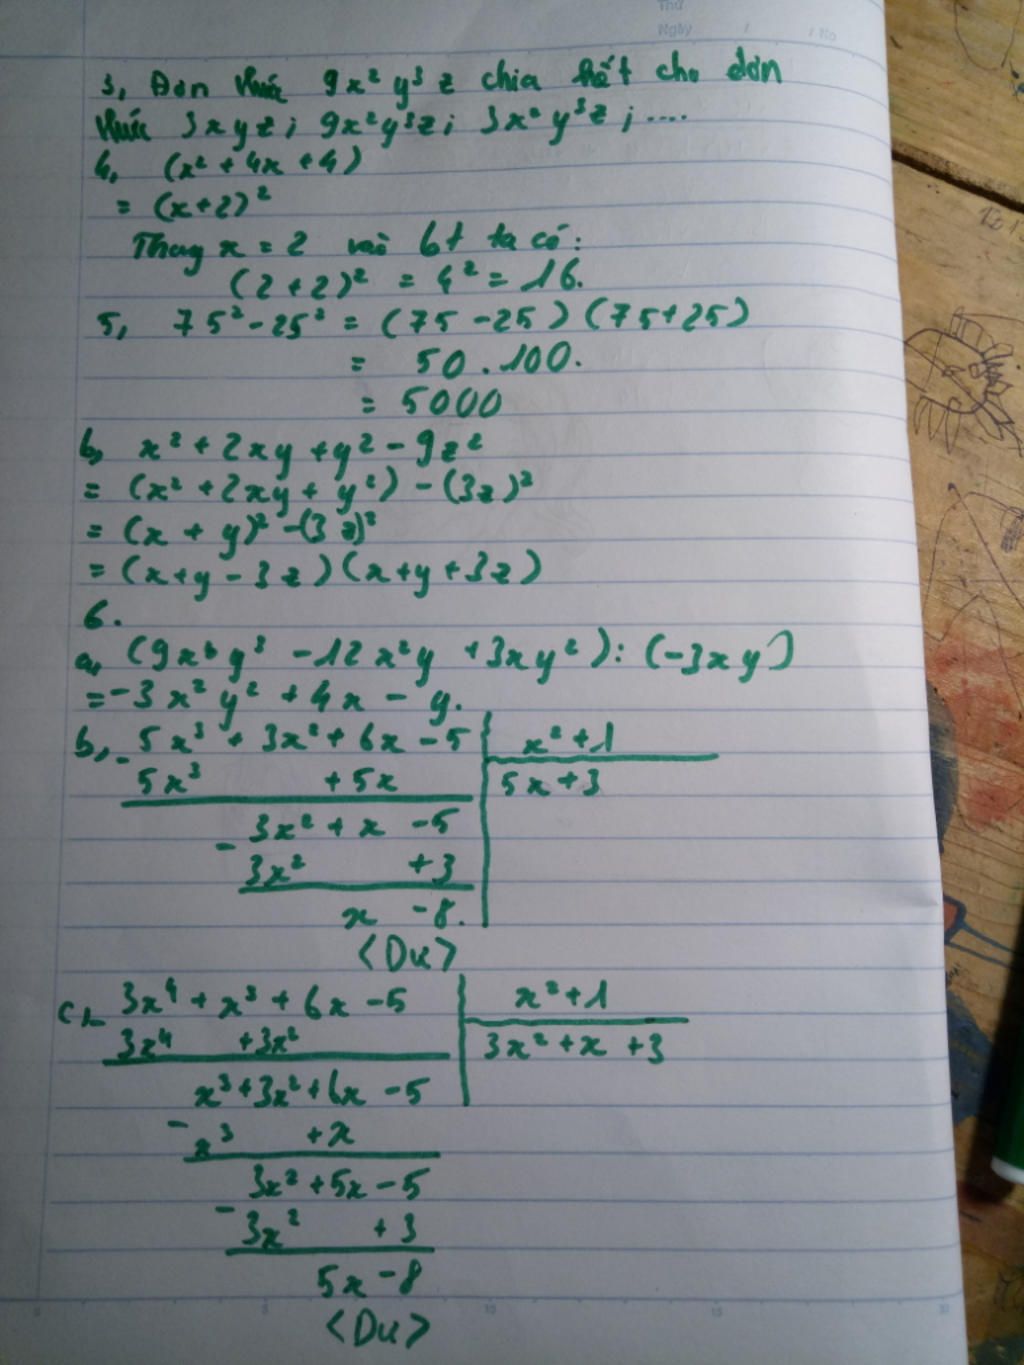 Thứ
Ngày / / No
3, Đơn thức 9x² y³ z chia hết cho đơn
thức 3xyz; 9x²y³z; 3x²y³z; ....
4, (x² + 4x + 4)
= (x+2)²
Thay x = 2 vào bt ta có:
(2+2)² = 4² = 16.
5, 75² - 25² = (75 - 25) (75+25)
= 50 . 100.
= 5000
b, x² + 2xy + y² - 9z²
= (x² + 2xy + y²) - (3z)²
= (x + y)² - (3z)²
= (x+y - 3z) (x+y+3z)
6.
a, (9x³y³ - 12x²y + 3xy²) : (-3xy)
= -3x²y² + 4x - y.
b, - 5x³ + 3x² + 6x - 5 x²+1
5x³ + 5x 5x + 3
- 3x² + x - 5
3x² + 3
x - 8.
<Dư>
c, - 3x⁴ + x³ + 6x - 5 x²+1
3x⁴ + 3x² 3x² + x + 3
x³ + 3x² + 6x - 5
- x³ + x
3x² + 5x - 5
- 3x² + 3
5x - 8
<Dư>
0 5 10 15